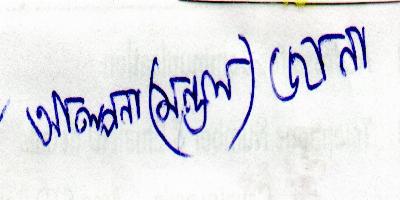 আলপনা (মন্ডল) জানা